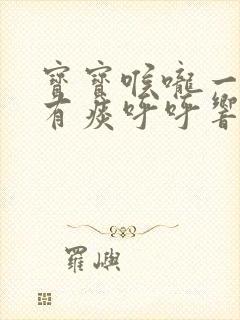 寶寶喉嚨一
有痰呼呼響
羅嶼